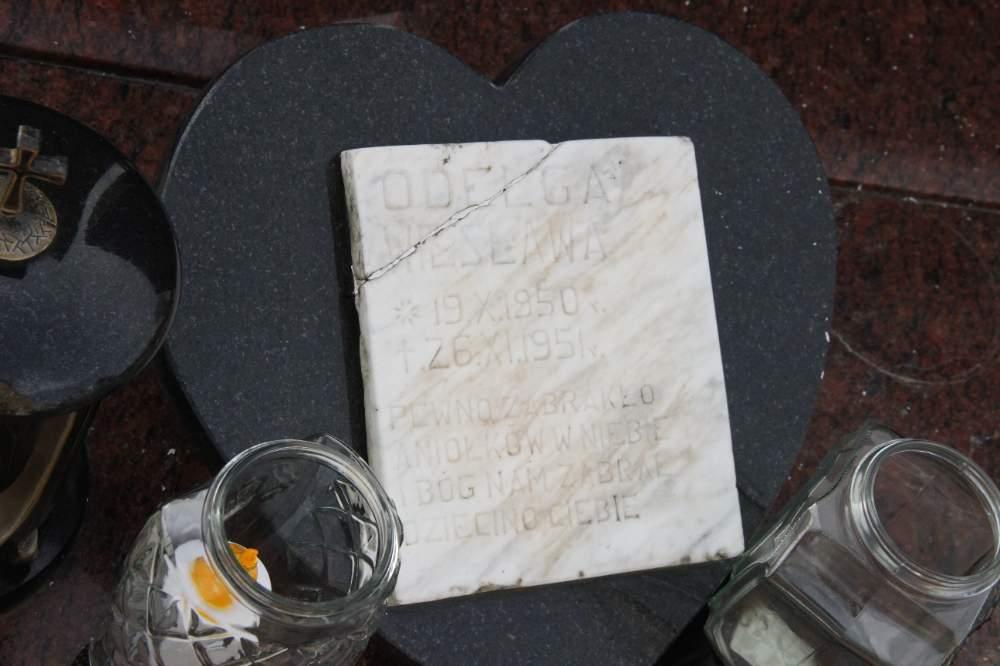 ODELGA
WIESŁAWA
* 19.X.1950 r.
† 26.XI.1951 r.
PEWNO ZABRAKŁO
ANIOŁKÓW W NIEBIE
I BÓG NAM ZABRAŁ
DZIECINO CIEBIE